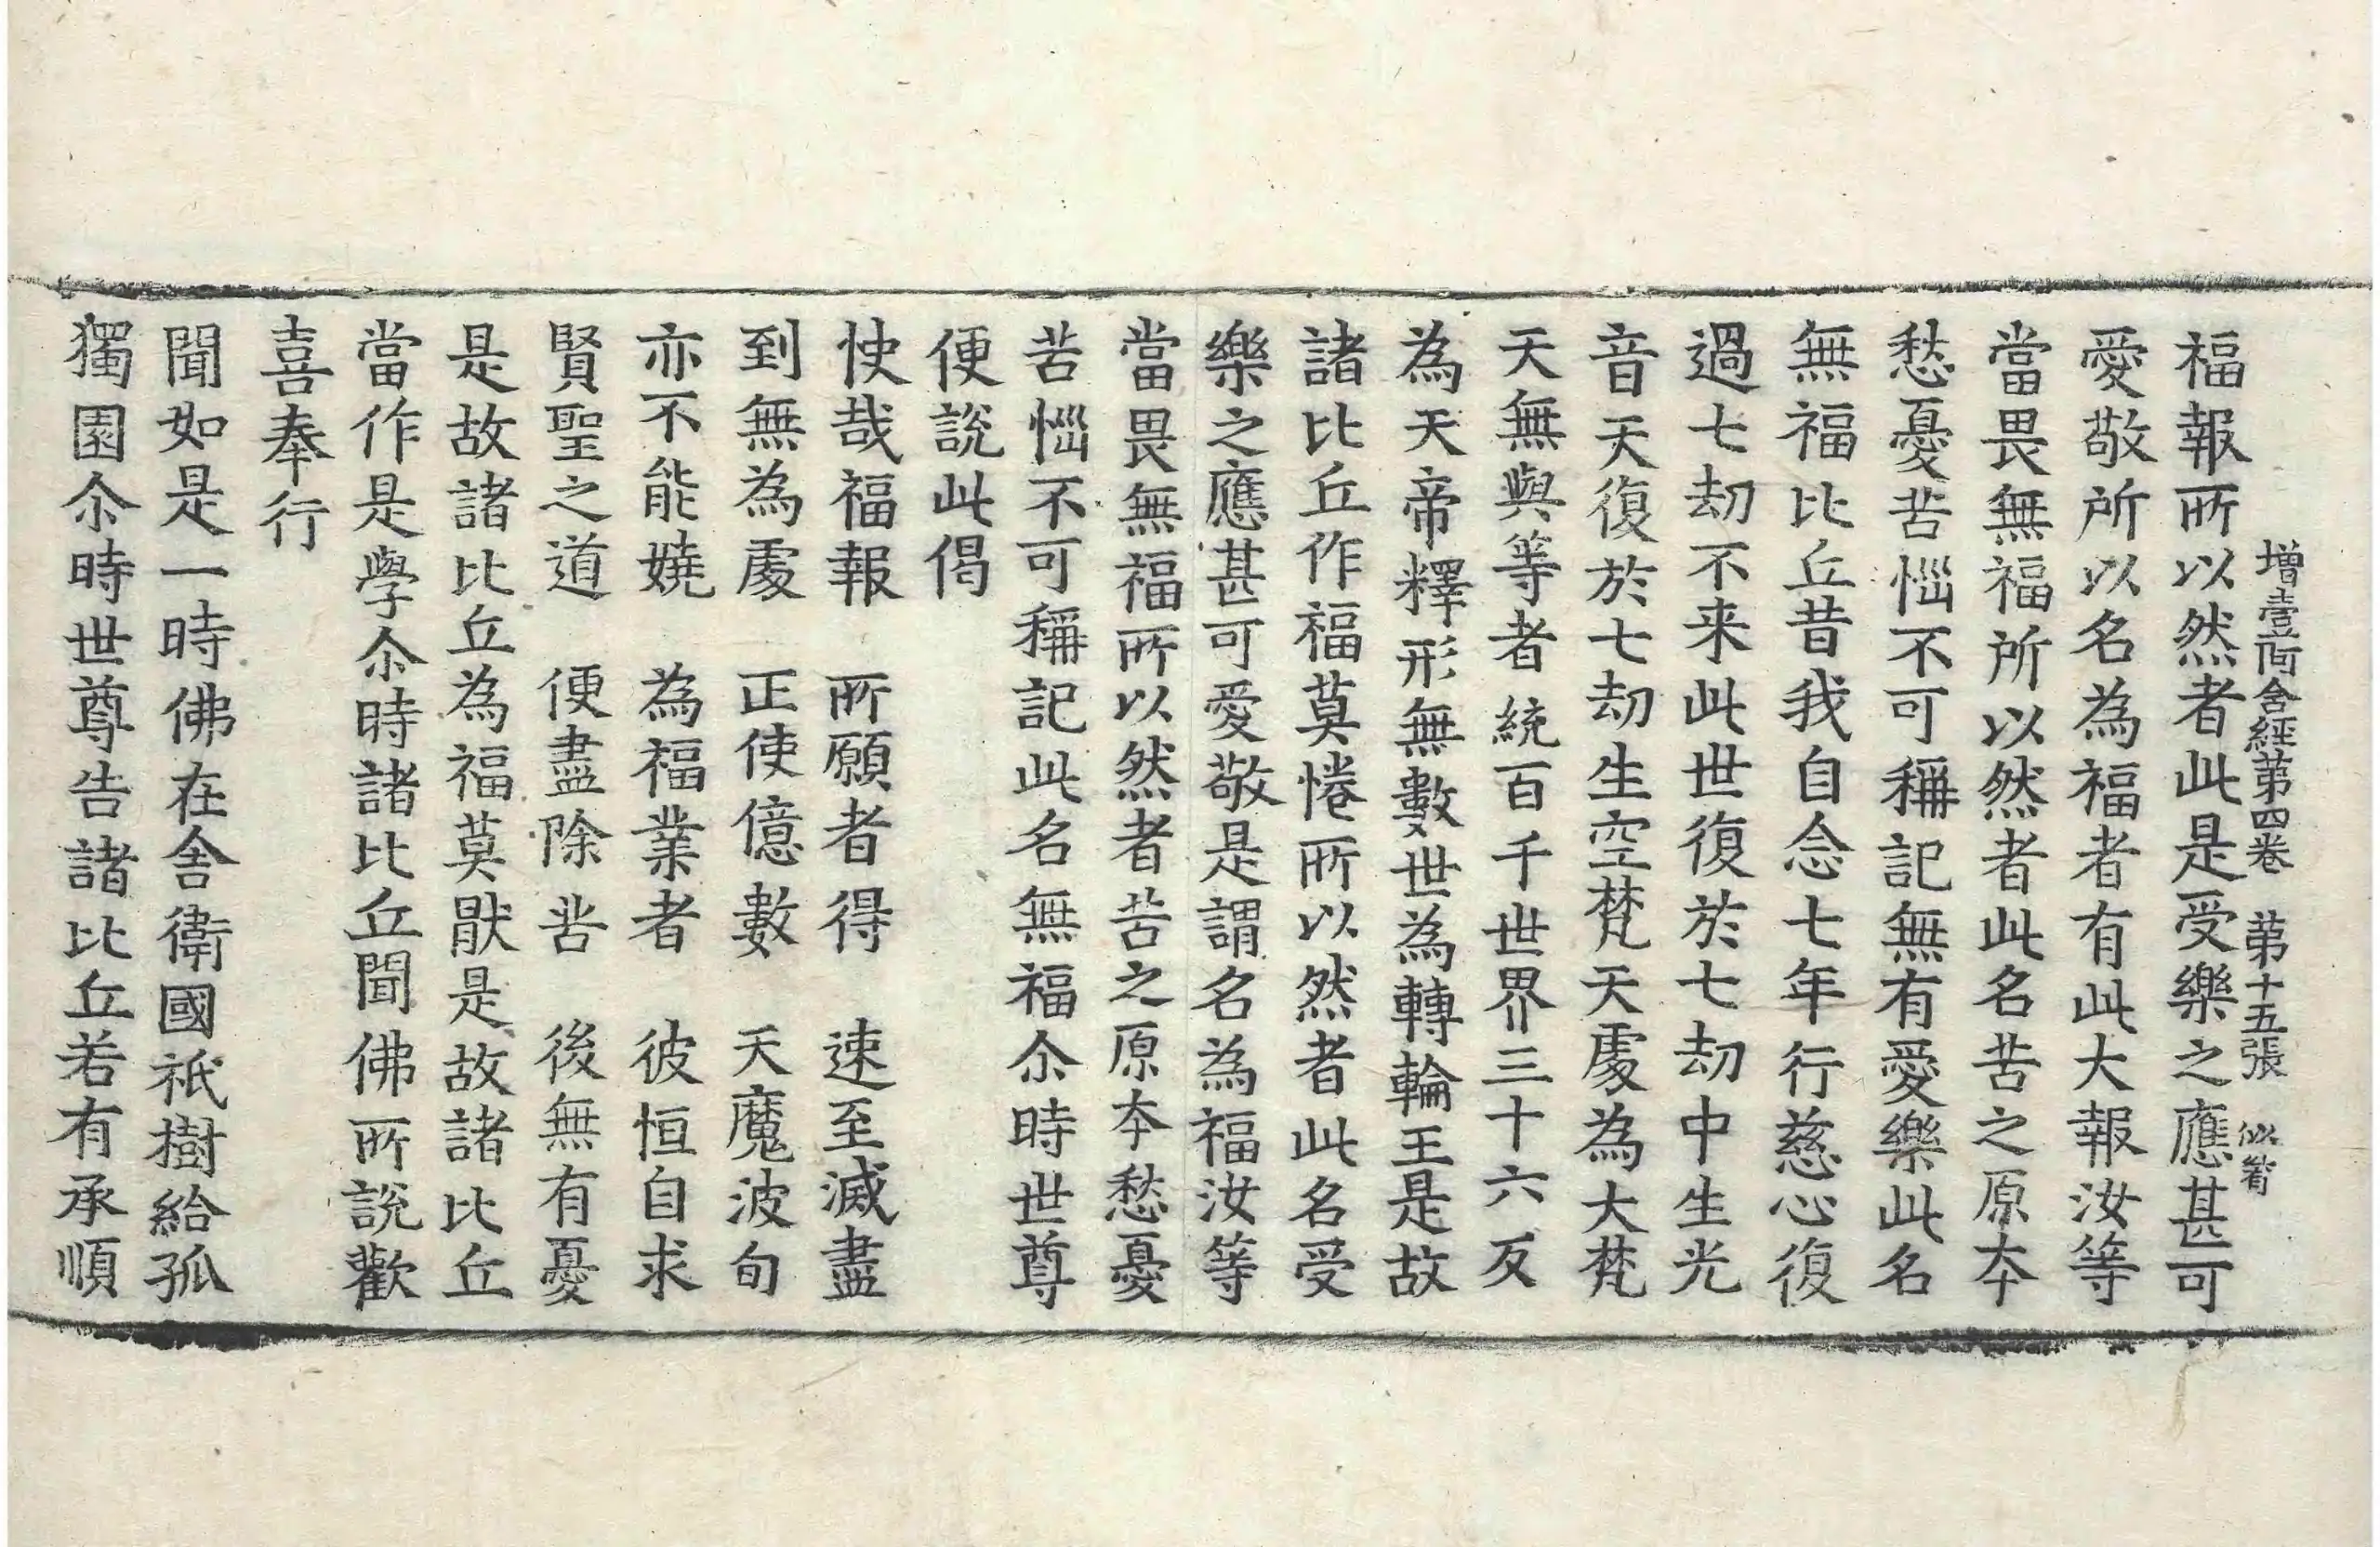 增壹阿含經第四卷　第十五張　似
福報所以然者此是受樂之應甚可
愛敬所以名為福者有此大報汝等
當畏無福所以然者此名苦之原夲
愁憂苦惱不可稱記無有愛樂此名
無福比丘昔我自念七年行慈心復
過七劫不来此世復於七劫中生光
音天復於七劫生空梵天處為大梵
天無與等者統百千世界三十六反
為天帝釋形無數世為轉輪王是故
諸比丘作福莫惓所以然者此名受
樂之應甚可愛敬是謂名為福汝等
當畏無福所以然者苦之原夲愁憂
苦惱不可稱記此名無福尒時世尊
便說此偈
快哉福報　所願者得　速至滅盡
到無為處　正使億數　天魔波旬
亦不能嬈　為福業者　彼恒自求
賢聖之道　便盡除苦　後無有憂
是故諸比丘為福莫猒是故諸比丘
當作是學尒時諸比丘聞佛所說歡
喜奉行
聞如是一時佛在舍衛國祇樹給孤
獨園尒時世尊告諸比丘若有承順